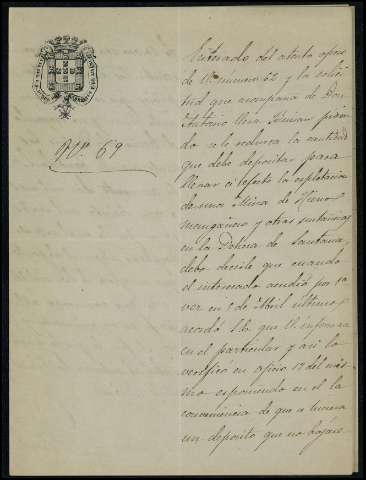 Nº. 69
Enterado del atento oficio
de V. numero 62 y la solici
tud que acompaña de Don
Antonio pidien
do se reduzca la cantidad
que debe depositar para
llevar á efecto la esplotacion
de una Mina de Hierro
manganeso y otras sustancias
en la Dehesa de Santana,
debo decirle que cuando
el interesado acudió por 1ª
vez en 1º de Abril último,
acordó S. E. que V. informara
en el particular y asi lo
verificó en oficio 17 del mis
mo esponiendo en el la
conveniencia de que se hiciera
un deposito que no bajase